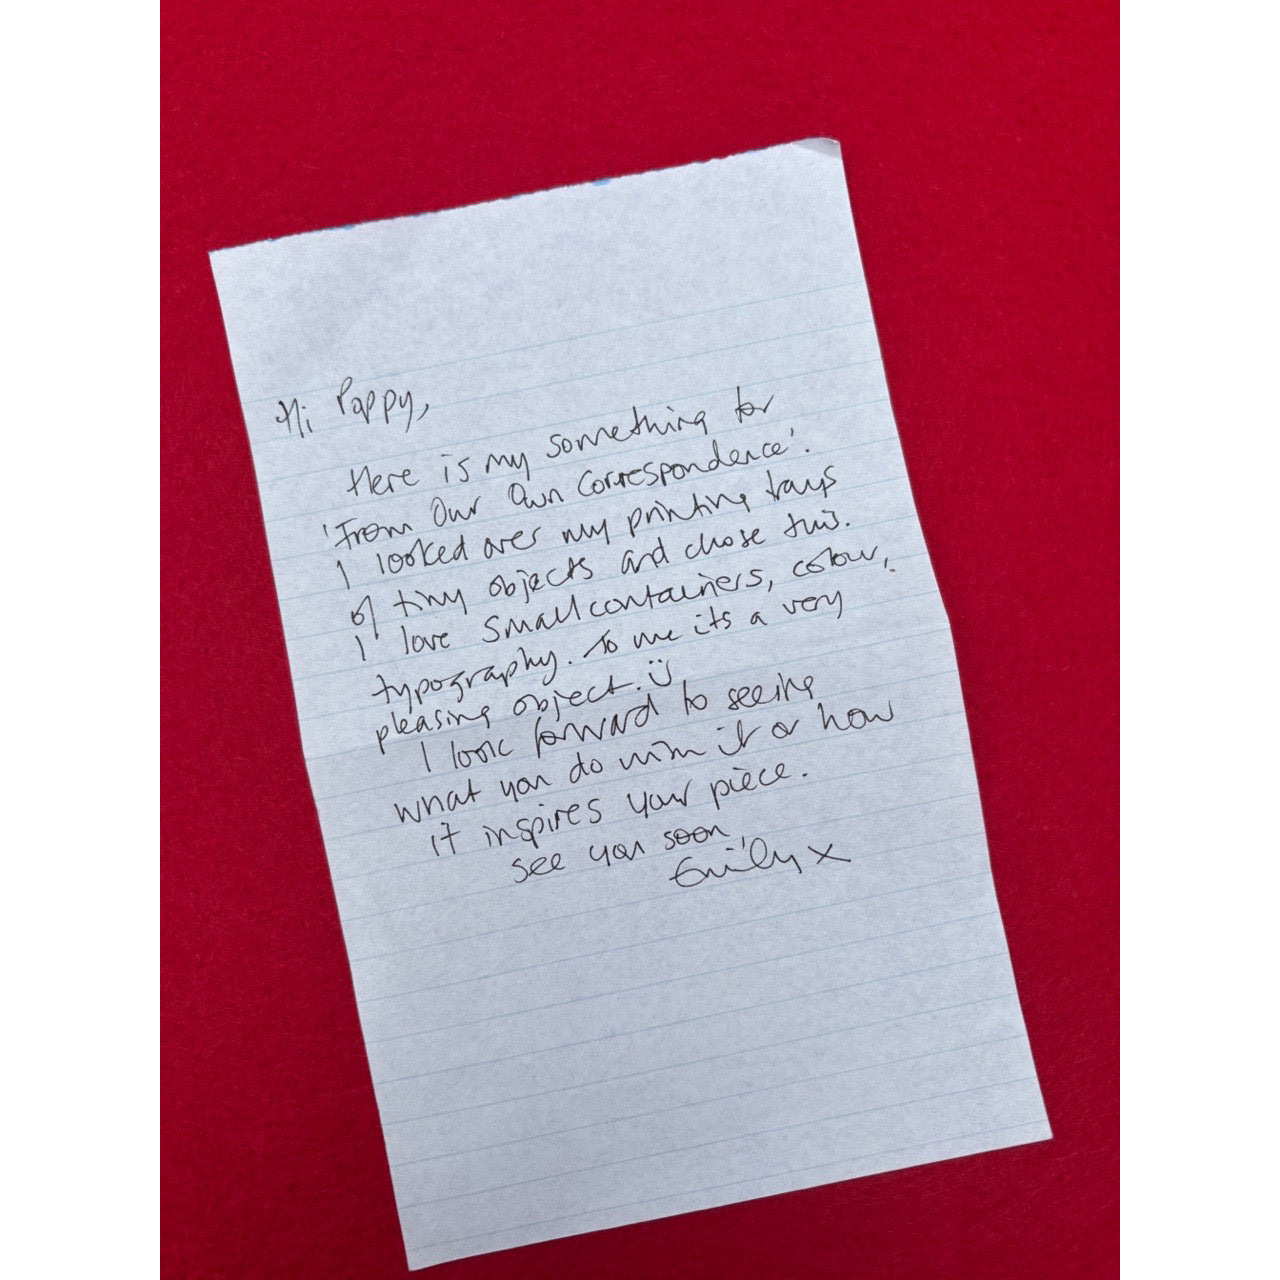 Hi Poppy,
Here is my something for
'From Our Own Correspondence'.
I looked over my printing trays
of tiny objects and chose this.
I love small containers, colour,
typography. To me its a very
pleasing object.
I look forward to seeing
what you do with it or how
it inspires your piece.
see you soon
Emily x